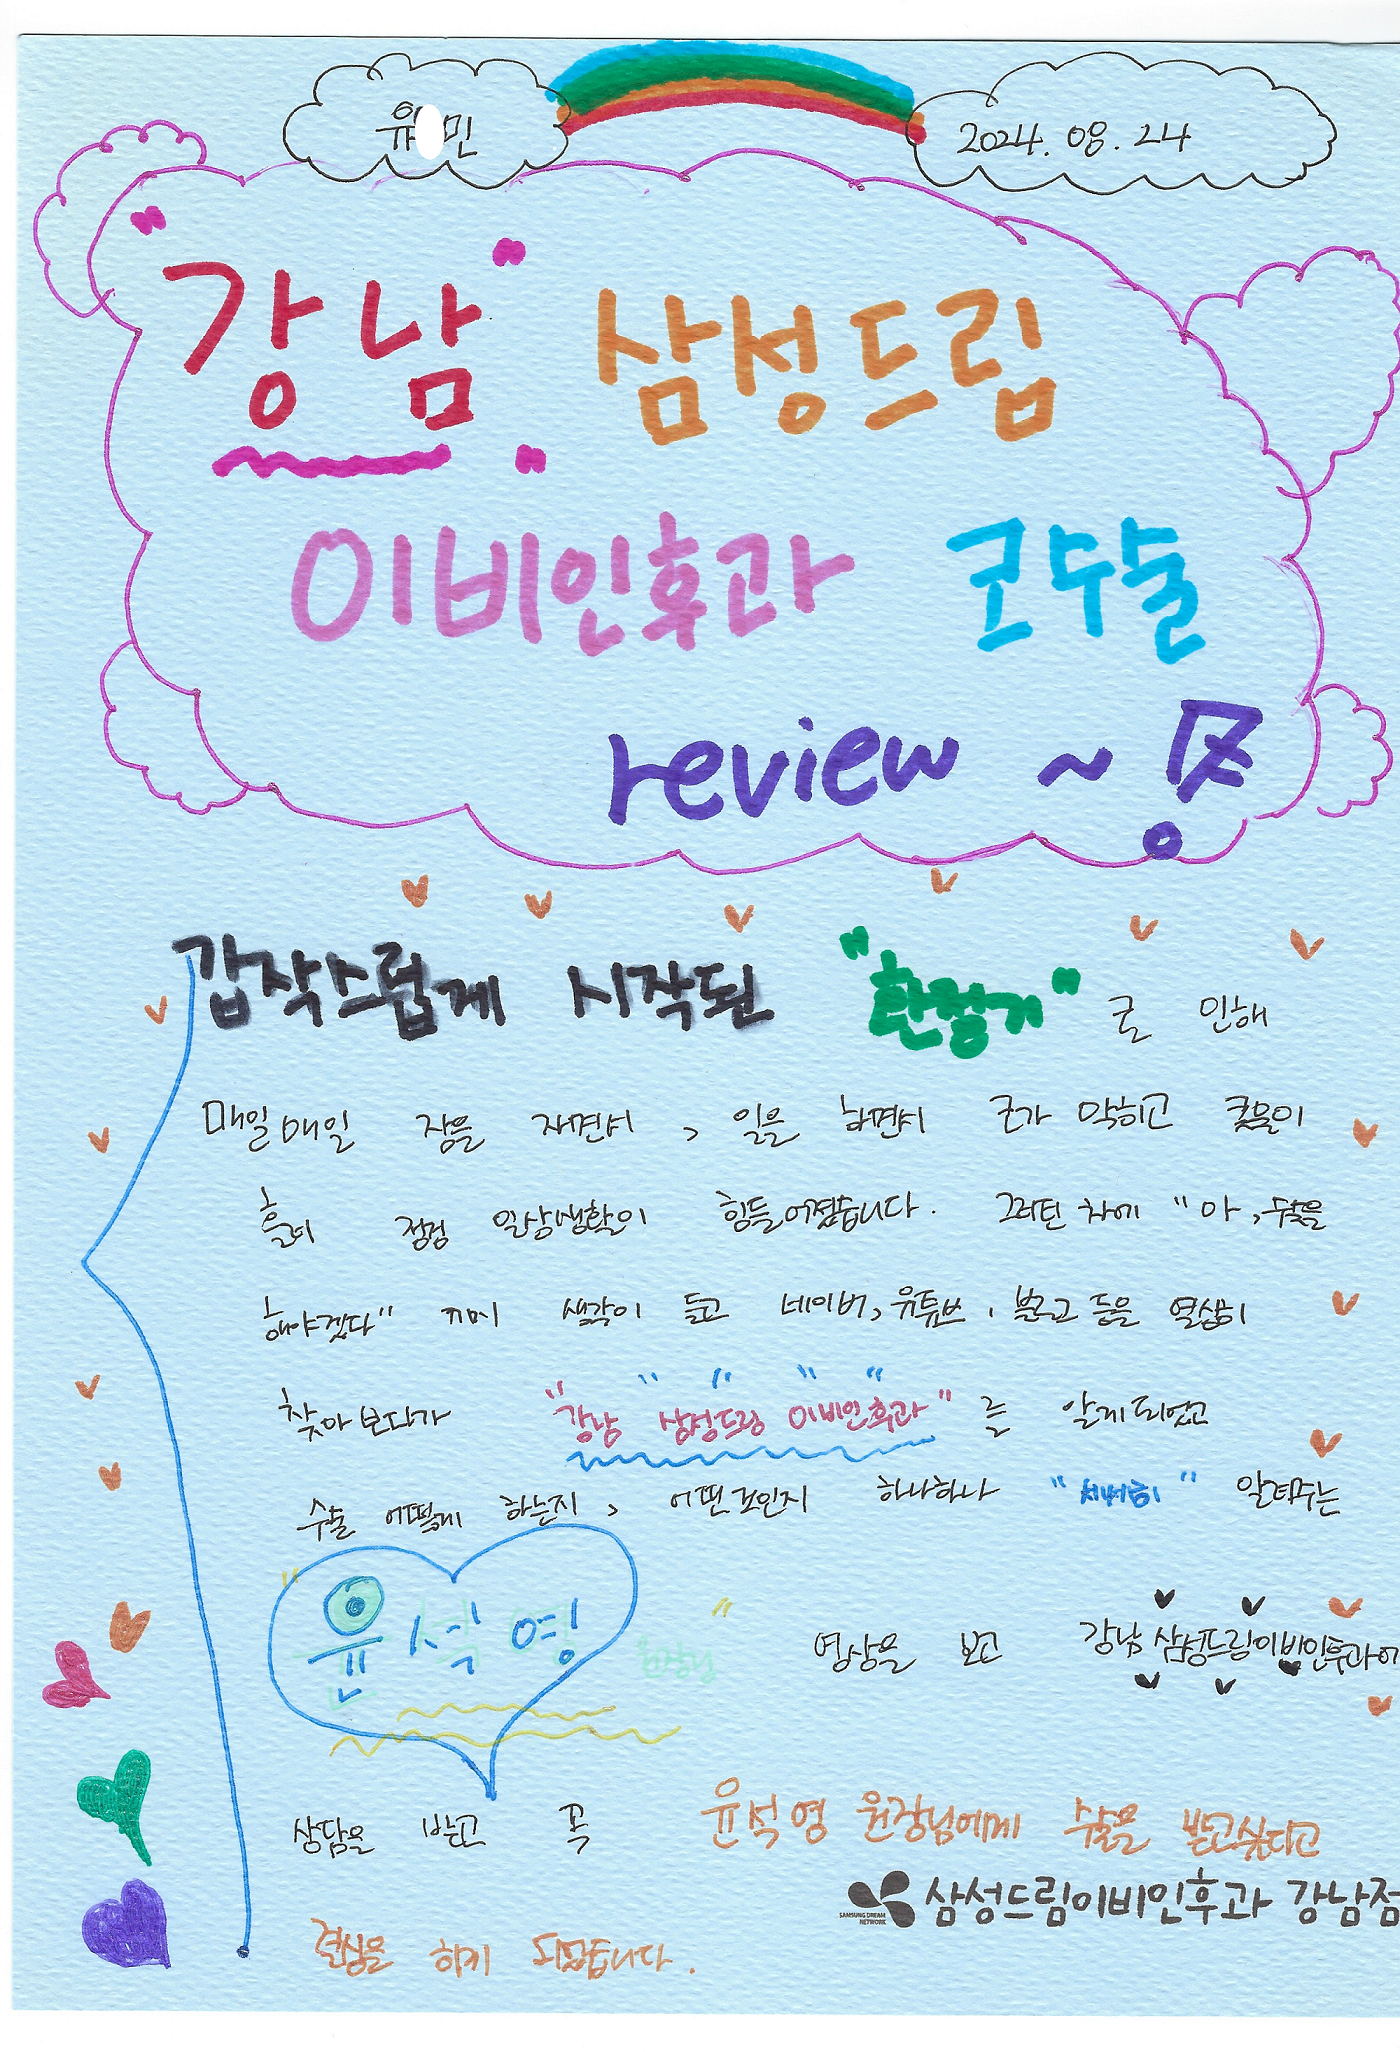 유 민
2024. 08. 24
"강남" 삼성드림
이비인후과 코수술
review ~!
갑작스럽게 시작된 "환절기"로 인해
매일매일 잠을 자면서, 일을 하면서 코가 막히고 콧물이
흘러 점점 일상생활이 힘들어졌습니다. 그러던 차에 "아, 수술을
해야겠다" 끼며 생각이 들고 네이버, 유튜브, 블로그 등을 열심히
찾아보다가 "강남 삼성드림 이비인후과"를 알게되었고
수술 어떻게 하는지, 어떤것인지 하나하나 "세세히" 알려주는
"윤석영 원장님" 영상을 보고 강남 삼성드림이비인후과에
상담을 받고 꼭 윤석영 원장님에게 수술을 받고싶다고
삼성드림이비인후과 강남점
SAMSUNG DREAM
NETWORK
결심을 하게 되었습니다.